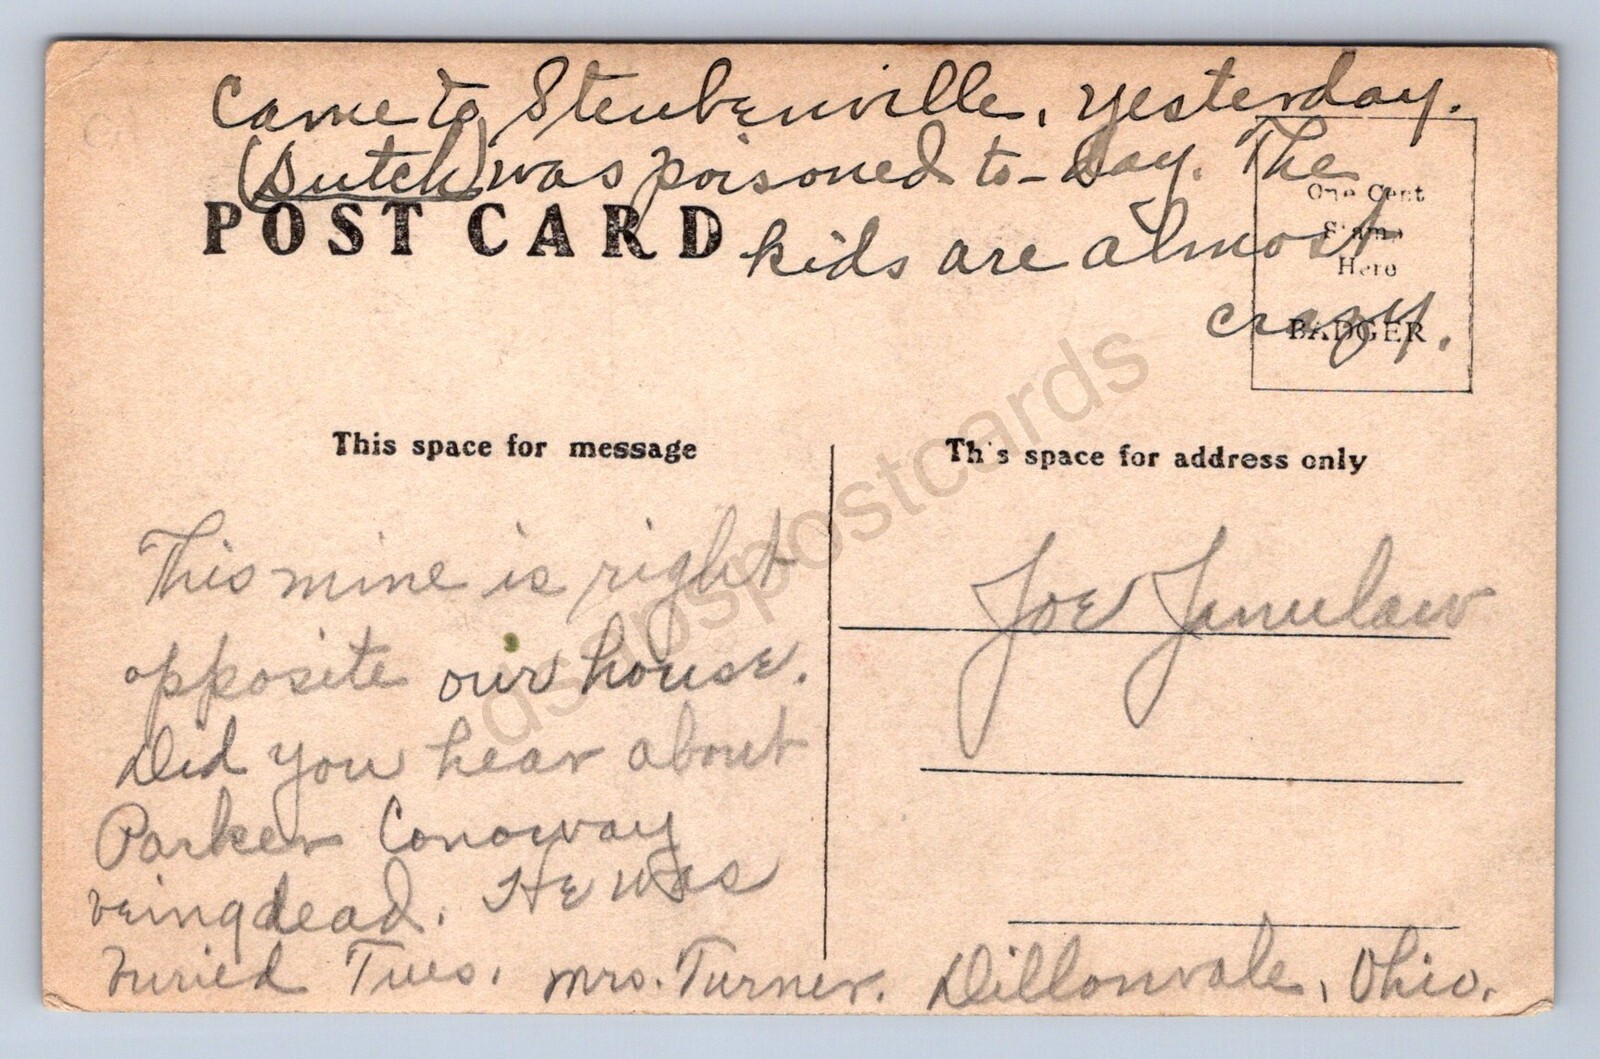 Came to Steubenville, yesterday.
(Dutch) was poisoned to-day. The
POST CARD
kids are almost
crazy.
One Cent
Stamp
Here
BADGER
This space for message
This mine is right
opposite our house.
Did you hear about
Parker Conoway
being dead. He was
buried Tues. Mrs. Turner.
Th's space for address only
Joe
Dillonvale, Ohio.
dsapspostcards